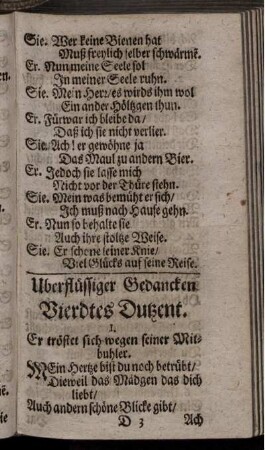 Sie. Wer keine Bienen hat
Muß freylich selber schwärmē.
Er. Nun meine Seele sol
In meiner Seele ruhn.
Sie. Mein Herr/ es wirds ihm wol
Ein ander Höltzgen thun.
Er. Fürwar ich bleibe da/
Daß ich sie nicht verlier.
Sie. Ach! er gewöhne ja
Das Maul zu andern Bier.
Er. Jedoch sie lasse mich
Nicht vor der Thüre stehn.
Sie. Mein was bemüht er sich/
Ich muß nach Hause gehn.
Er. Nun so behalte sie
Auch ihre stoltze Weise.
Sie. Er schone seiner Knie/
Viel Glücks auf seine Reise.
Uberflüssiger Gedancken
Vierdtes Dutzent.
I.
Er tröstet sich wegen seiner Mit-
buhler.
MEin Hertze bist du noch betrübt/
Dieweil das Mädgen das dich
liebt/
Auch andern schöne Blicke gibt/
D 3 Ach